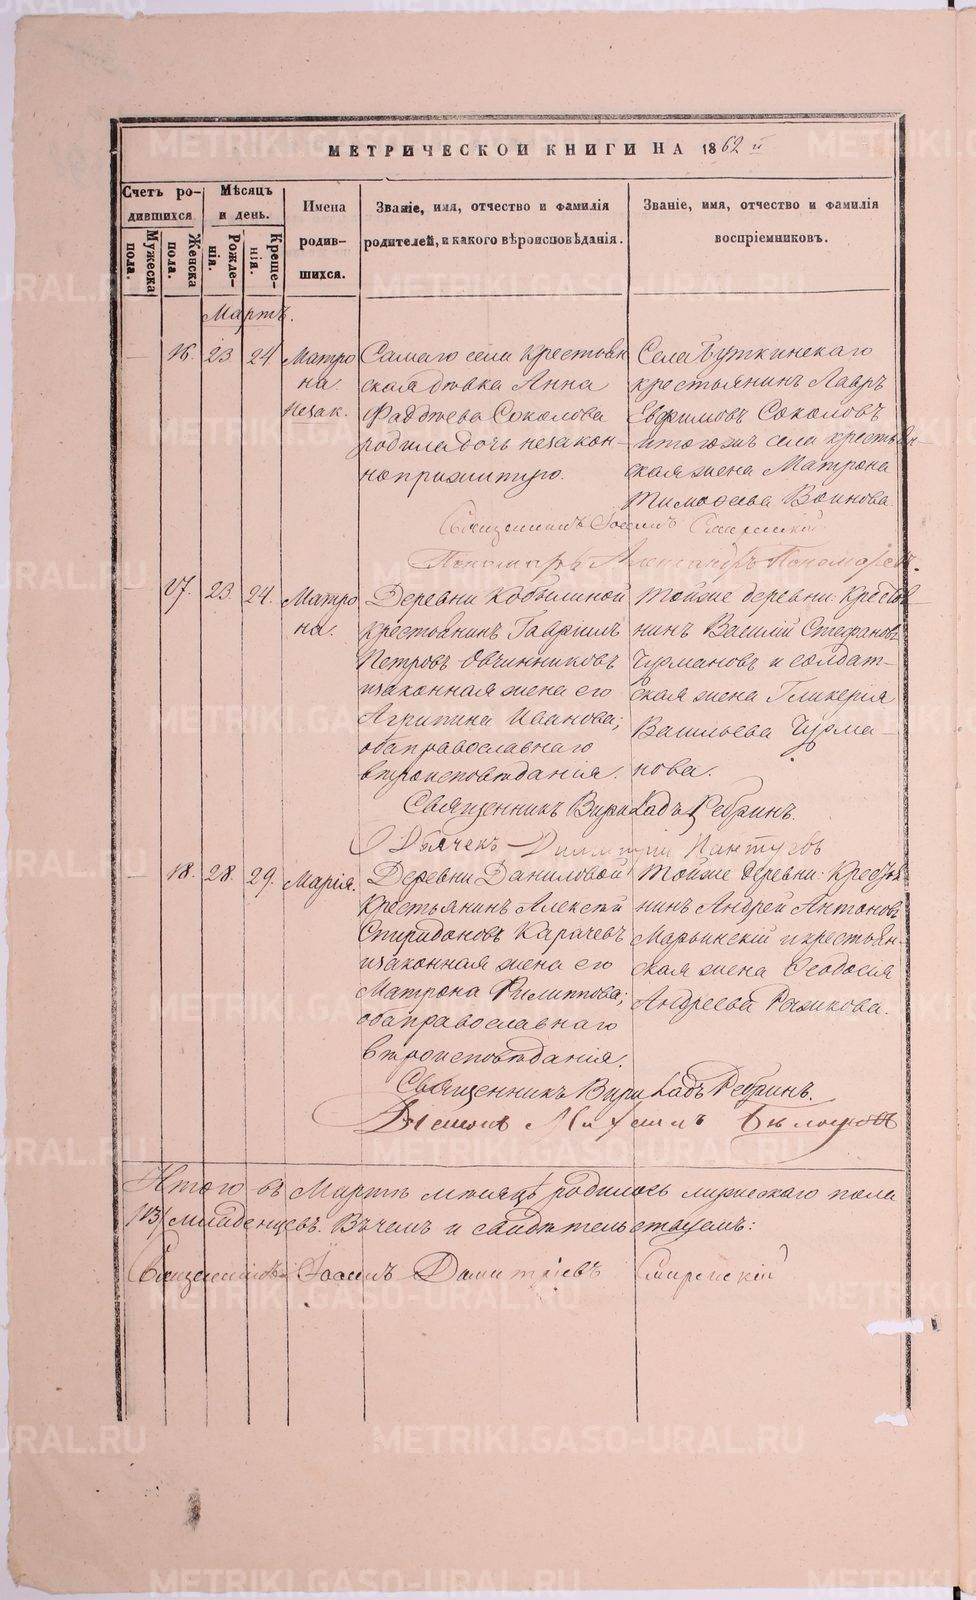 МЕТРИЧЕСКОЙ КНИГИ НА 1862 й
Счетъ ро-
дившихся
Мужеска пола.
Женска пола.
Мѣсяцъ
и день.
Рожде-
нія.
Креще-
нія.
Имена
родив-
шихся.
Званіе, имя, отчество и фамилія
родителей, и какого вѣроисповѣданія.
Званіе, имя, отчество и фамилія
воспріемниковъ.
Мартъ.
16. 23 24
Матро
на.
незак.
Самаго села крестьян
ская дѣвка Анна
Фаддѣева Соколова
родила дочь незакон-
ноприжитую.
Села Буткинскаго
крестьянинъ Лавръ
Евфимовъ Соколовъ
итогожъ села крестьян-
ская жена Матрона
Тимоѳеева Воинова.
Священникъ Іосифъ Смирнскій
Пономарь Александръ Пономаревъ.
17. 23. 24.
Матро
на.
Деревни Кобылиной
крестьянинъ Гавріилъ
Петровъ Овчинниковъ
изаконная жена его
Агрипина Иванова;
оба православнаго
вѣроисповѣданія.
Тойже деревни: Крестья
нинъ Василій Стефановъ
Чурмановъ и солдат-
ская жена Гликерія
Васильева Чурма-
нова.
Священникъ Вирикадъ Ребринъ.
Дьячекъ Димитрій Пантуевъ
18. 28. 29.
Марія.
Деревни Даниловой
Крестьянинъ Алексѣй
Спиридоновъ Карачевъ
изаконная жена его
Матрона Филиппова;
оба православнаго
вѣроисповѣданія.
Тойже деревни: Крестья
нинъ Андрей Антоновъ
Марьинскій и крестьян-
ская жена Ѳеодосія
Андреева Рожкова.
Священникъ Вирикадъ Ребринъ.
Дьячекъ Михаилъ
Итого въ Мартѣ мѣсяцѣ родилось мужескаго пола
/13/ младенцевъ. Въ чемъ и свидѣтельствуемъ:
Священникъ Іосифъ Димитріевъ Смирнскій
METRIKI.GASO-URAL.RU